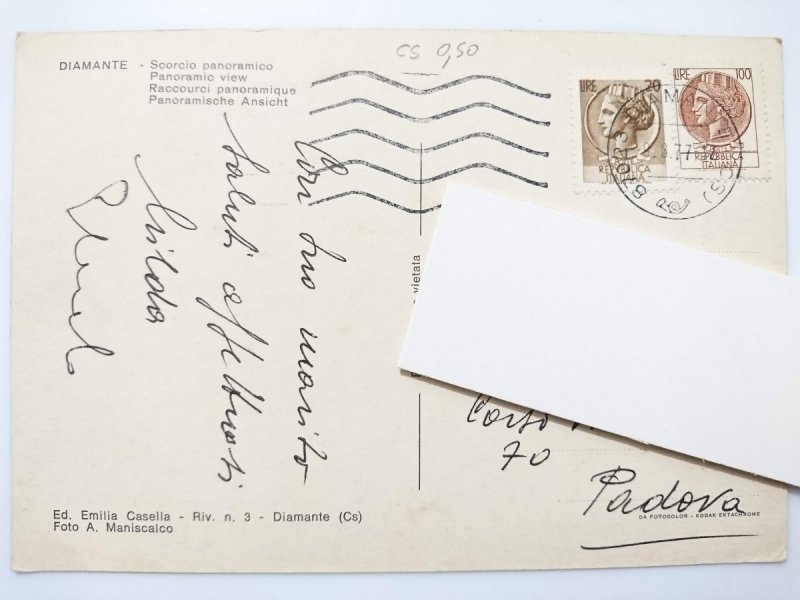 CS 0,50
DIAMANTE - Scorcio panoramico
Panoramic view
Raccourci panoramique
Panoramische Ansicht
LIRE 20
REPUBBLICA
ITALIANA
LIRE 100
REPUBBLICA
ITALIANA
87023 DIAMANTE (CS)
.8.77
Con tuo marito
saluti affettuosi
Gilda
vietata
Corso
70
Padova
DA FOTOCOLOR - KODAK EKTACHROME
Ed. Emilia Casella - Riv. n. 3 - Diamante (Cs)
Foto A. Maniscalco